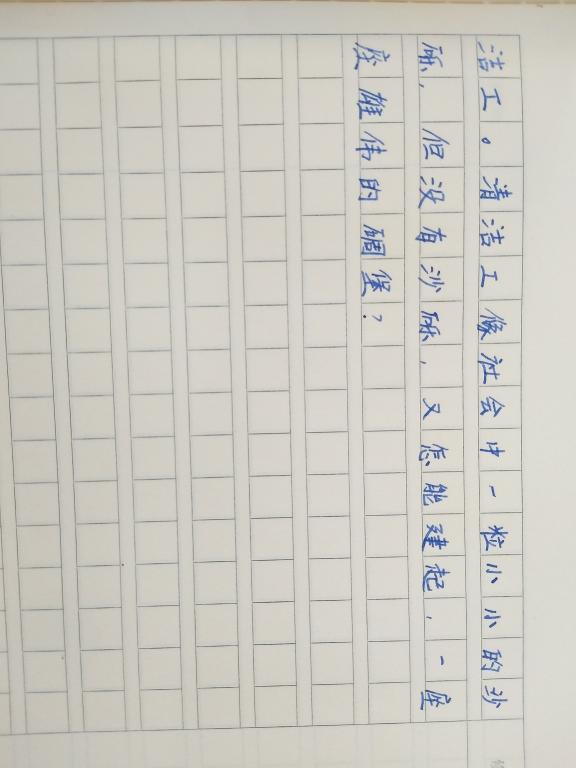 洁工。清洁工像社会中一粒小小的沙
砾，但没有沙砾，又怎能建起，一座
座雄伟的碉堡？